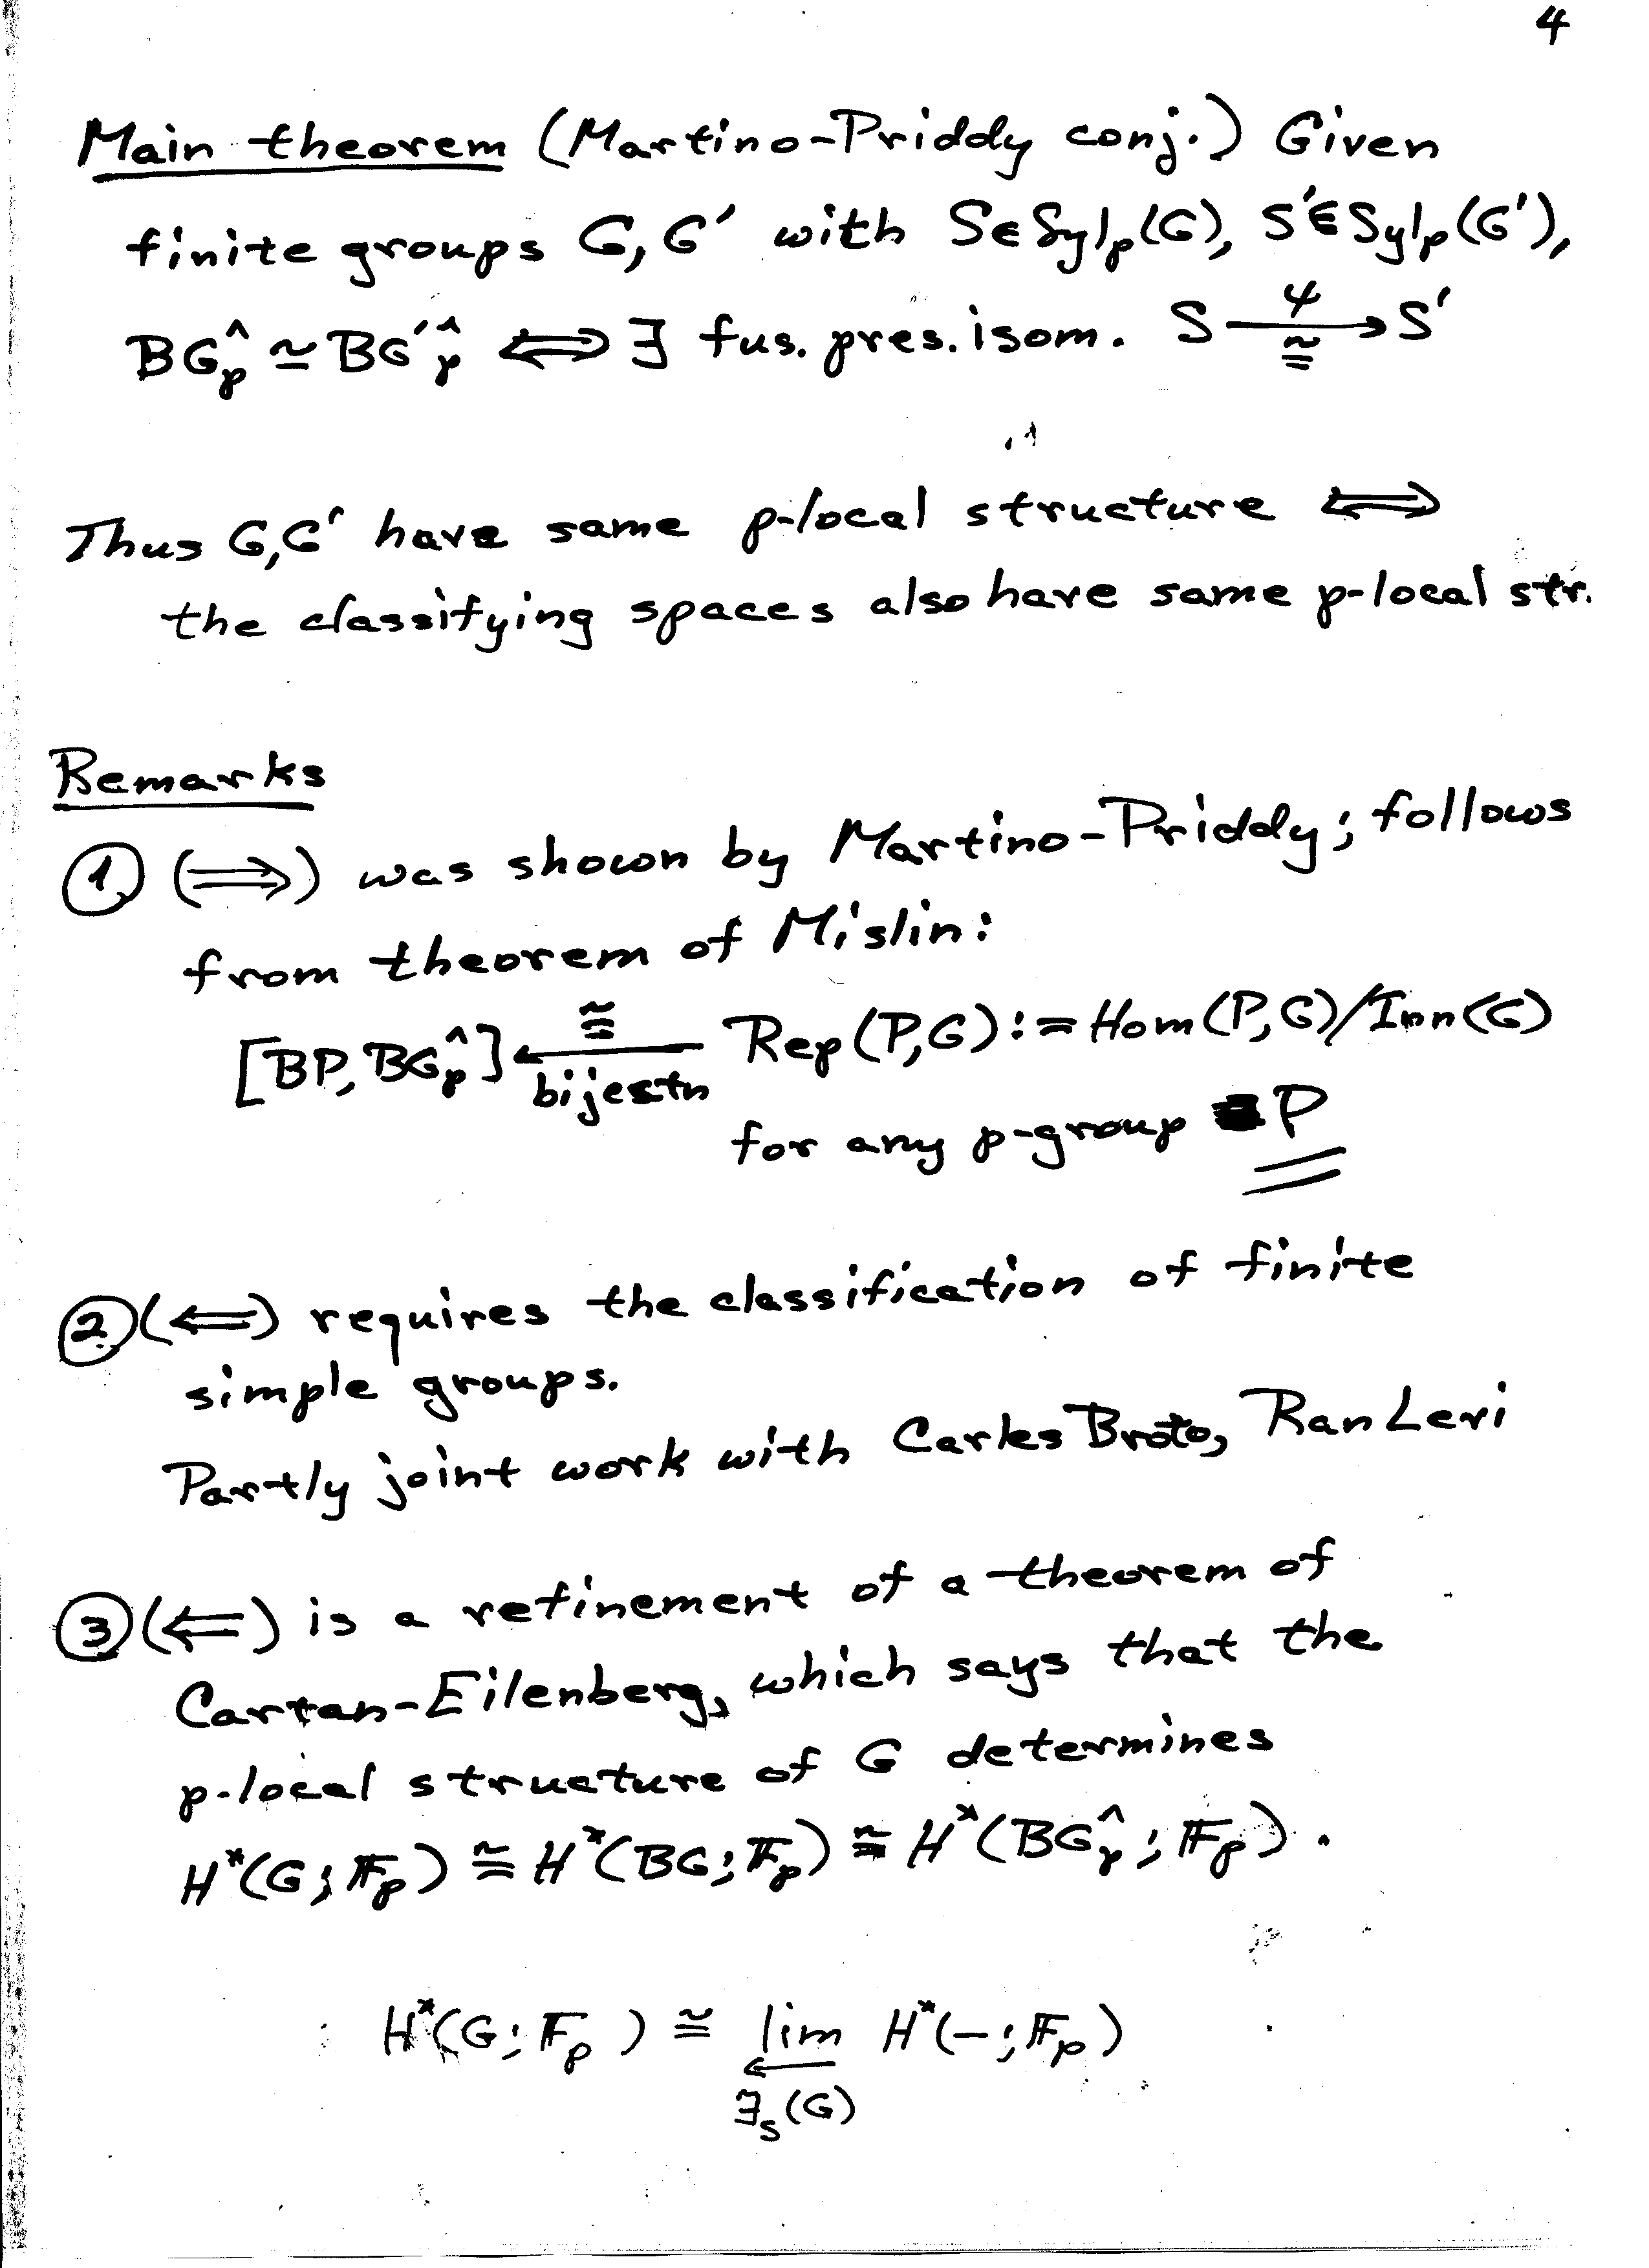 4
Main theorem (Martino-Priddy conj.) Given
finite groups G, G′ with S∈Sylₚ(G), S′∈Sylₚ(G′),
BG^ₚ ≃ BG′^ₚ ⟺ ∃ fus. pres. isom. S —ψ/≅→ S′
Thus G, G′ have same p-local structure ⟺
the classifying spaces also have same p-local str.
Remarks
① (⟹) was shown by Martino-Priddy; follows
from theorem of Mislin:
[BP, BG^ₚ] ←≅/bijectn— Rep(P,G) := Hom(P,G)/Inn(G)
for any p-group P
② (⟸) requires the classification of finite
simple groups.
Partly joint work with Carles Broto, Ran Levi
③ (⟸) is a refinement of a theorem of
Cartan-Eilenberg, which says that the
p-local structure of G determines
H*(G; 𝔽ₚ) ≅ H*(BG; 𝔽ₚ) ≅ H*(BG^ₚ; 𝔽ₚ).
H*(G; 𝔽ₚ) ≅ lim H*(-; 𝔽ₚ)
←
ℱ_S(G)